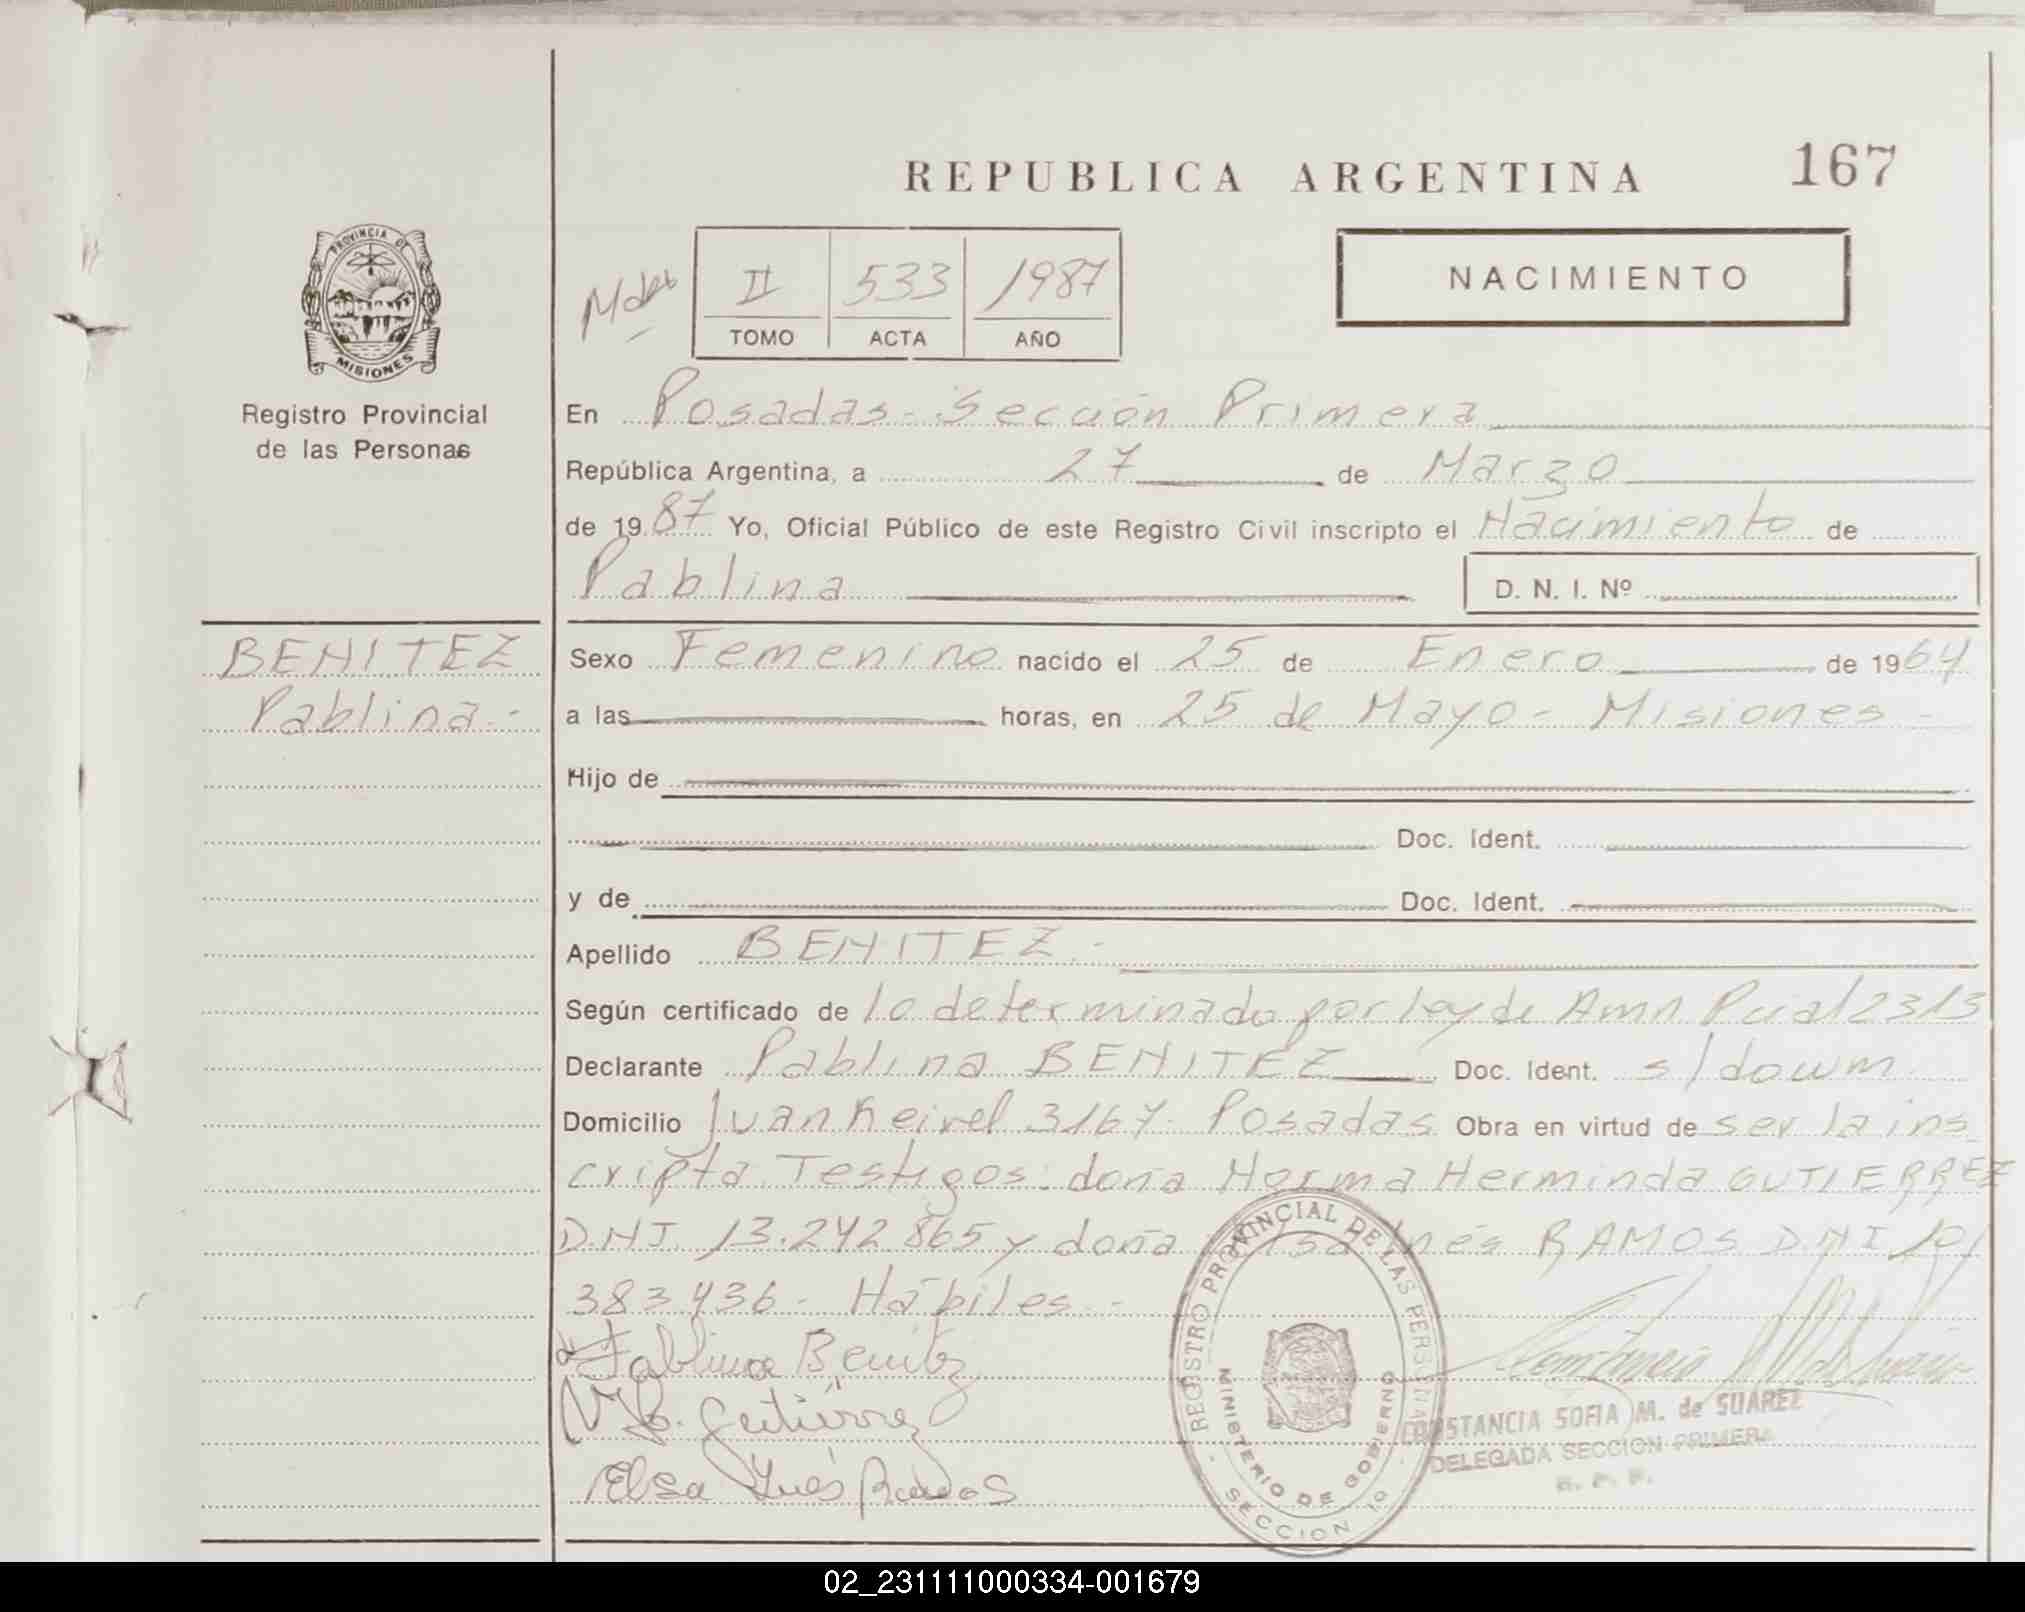 REPUBLICA ARGENTINA
167
PROVINCIA DE
MISIONES
Registro Provincial
de las Personas
II 533 1987
TOMO ACTA AÑO
NACIMIENTO
En Posadas - Sección Primera
República Argentina, a 27 de Marzo
de 1987 Yo, Oficial Público de este Registro Civil inscripto el Nacimiento de
Pablina D. N. I. Nº
BENITEZ
Pablina.-
Sexo Femenino nacido el 25 de Enero de 1964
a las horas, en 25 de Mayo - Misiones -
Hijo de
Doc. Ident.
y de Doc. Ident.
Apellido BENITEZ.-
Según certificado de lo determinado por ley de Amn. Pcial 2313
Declarante Pablina BENITEZ Doc. Ident. s/docum
Domicilio Juan 3167 Posadas Obra en virtud de ser la ins
cripta. Testigos: doña Norma Herminda GUTIERREZ
D.N.I. 13.242.865 y doña Elsa Inés RAMOS D.N.I. 10/
383436 - Hábiles.-
Pablina Benitez
N H. Gutiérrez
Elsa Inés Ramos
REGISTRO PROVINCIAL DE LAS PERSONAS
MINISTERIO DE GOBIERNO
SECCION 1º
CONSTANCIA SOFIA M. de SUAREZ
DELEGADA SECCION PRIMERA
R. P. P.
02_231111000334-001679